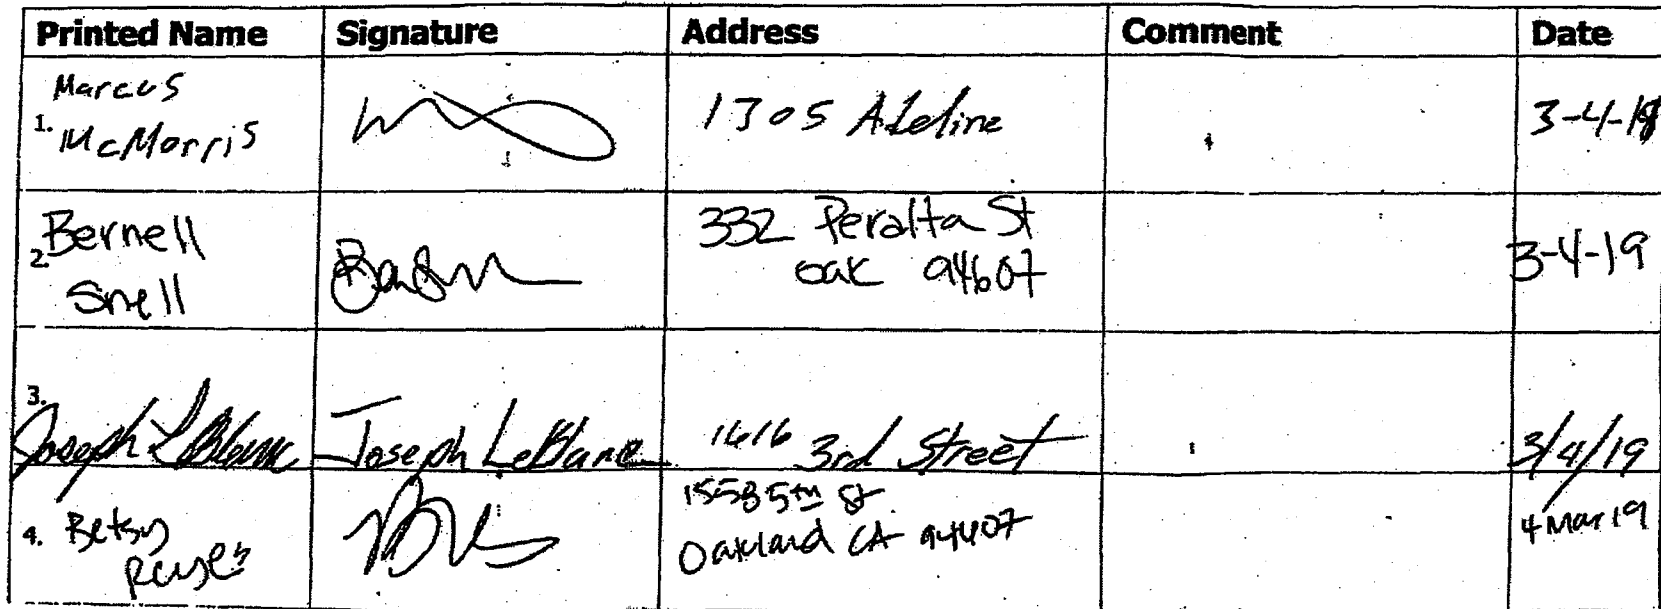 Printed Name Signature Address Comment Date
Marcus
1. McMorris 1305 Adeline 3-4-19
Bernell 332 Peralta St
2. Snell oak 94607 3-4-19
3.
Joseph LeBlanc Joseph LeBlanc 1616 3rd Street 3/4/19
4. Betsy 1558 5th St 4 Mar 19
Oakland CA 94607